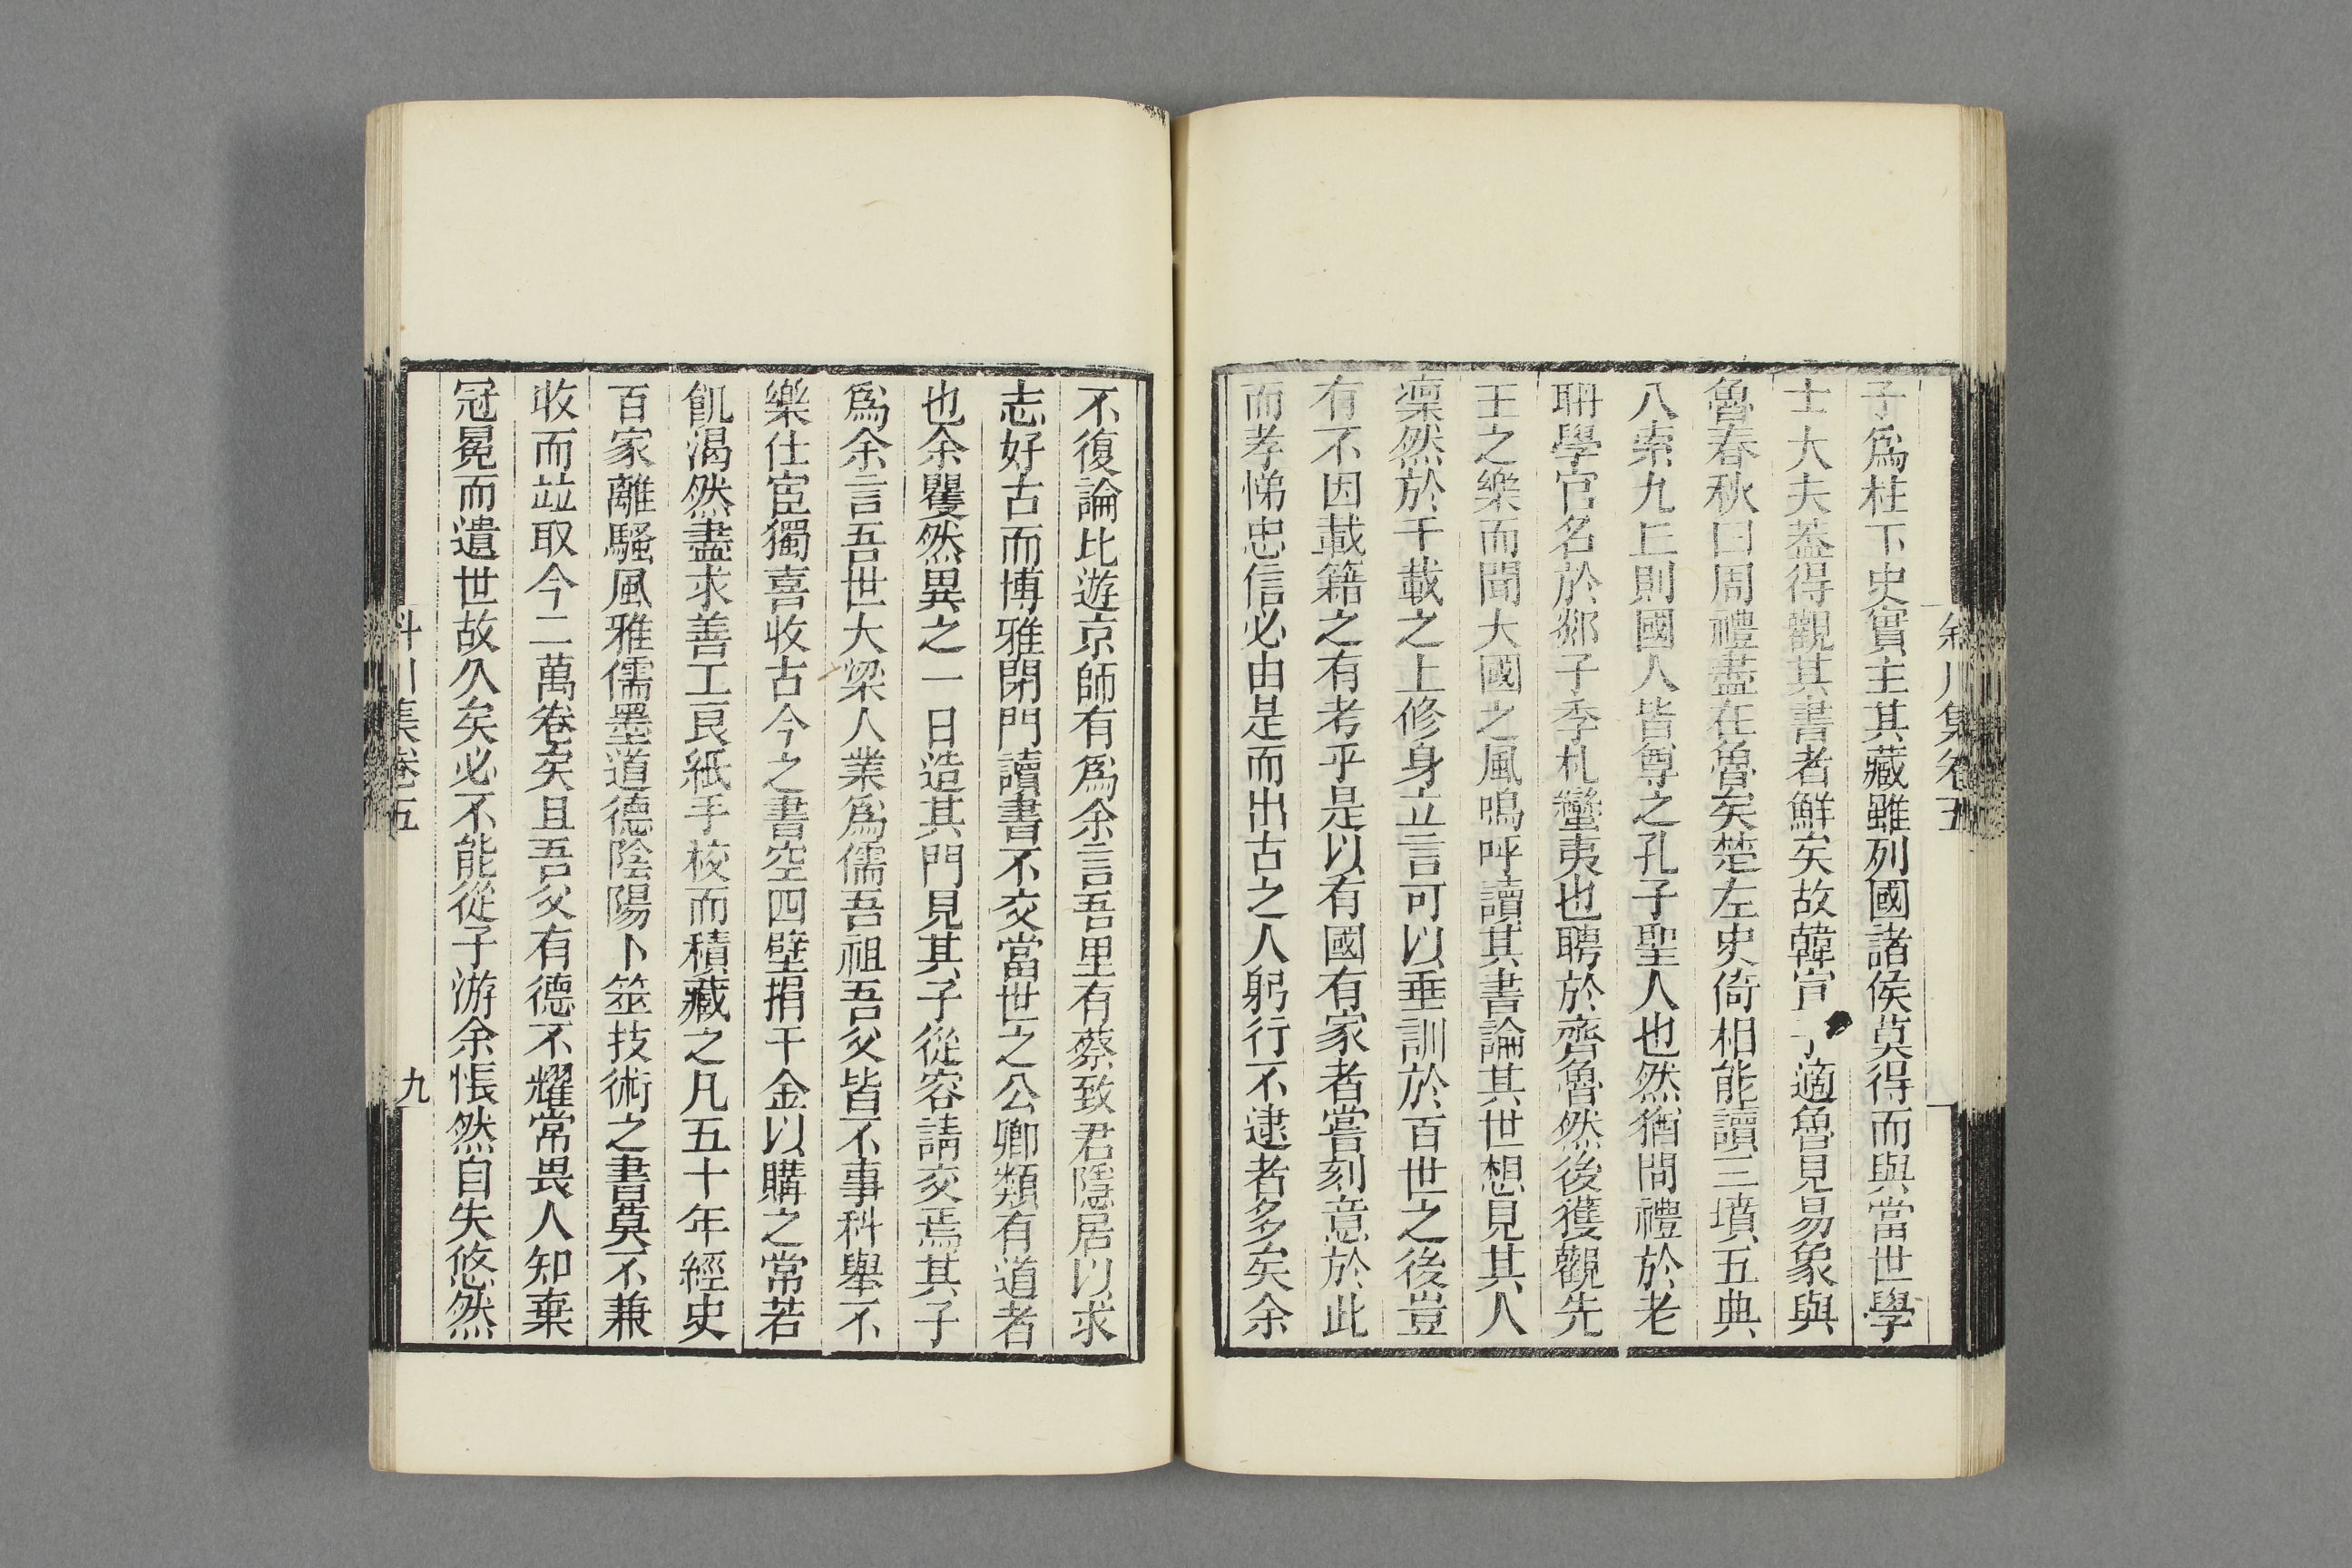 子爲柱下史實主其藏雖列國諸侯莫得而與當世學
士大夫葢得觀其書者鮮矣故韓宣子適魯見易象與
魯春秋曰周禮盡在魯矣楚左史倚相能讀三墳五典
八索九丘則國人皆尊之孔子聖人也然猶問禮於老
聃學官名於郯子季札蠻夷也聘於齊魯然後獲觀先
王之樂而聞大國之風嗚呼讀其書論其世想見其人
凛然於千載之上修身立言可以垂訓於百世之後豈
有不因載籍之有考乎是以有國有家者嘗刻意於此
而孝悌忠信必由是而出古之人躬行不逮者多矣余
不復論比遊京師有爲余言吾里有蔡致君隱居以求
志好古而博雅閉門讀書不交當世之公卿類有道者
也余矍然異之一日造其門見其子從容請交焉其子
爲余言吾世大梁人業爲儒吾祖吾父皆不事科舉不
樂仕宦獨喜收古今之書空四壁捐千金以購之常若
飢渴然盡求善工良紙手校而積藏之凡五十年經史
百家離騷風雅儒墨道德陰陽卜筮技術之書莫不兼
收而竝取今二萬卷矣且吾父有德不耀常畏人知棄
冠冕而遺世故久矣必不能從子游余悵然自失悠然
斗川集卷五
九